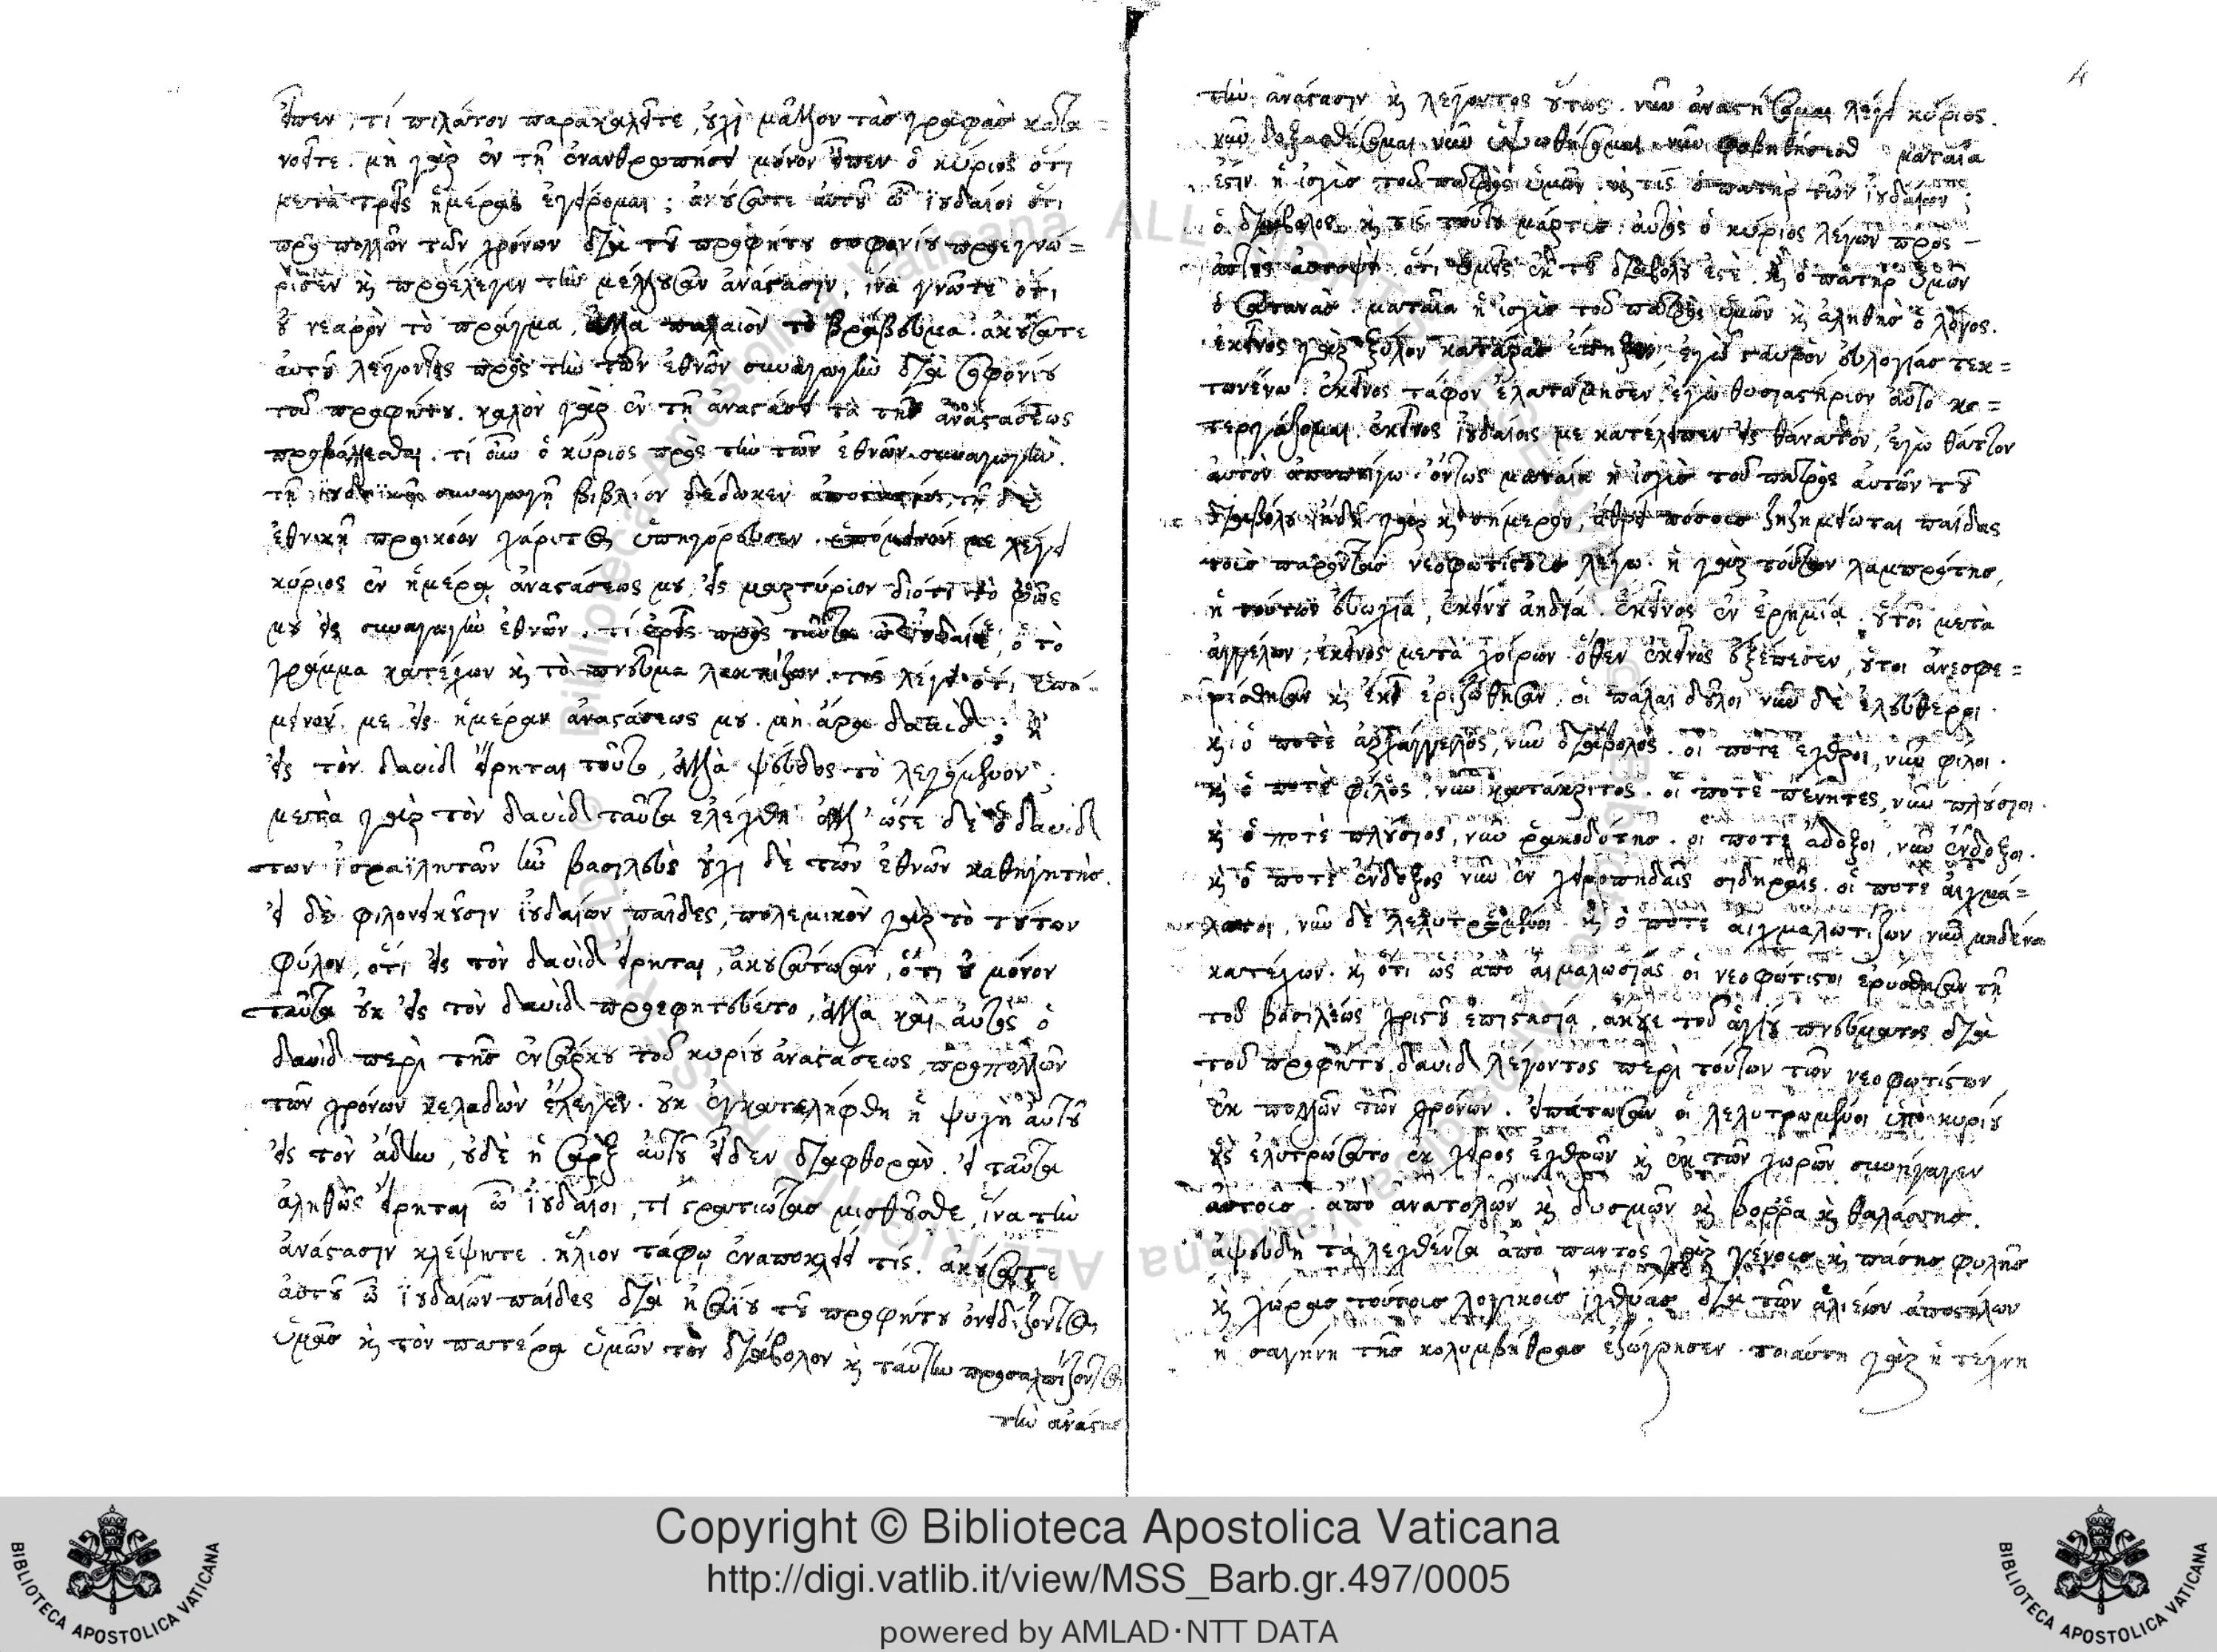 εἶπεν, τί πιλάτον παρακαλεῖτε, οὐχὶ μᾶλλον τὰς γραφὰς κατα=
νοεῖτε. μὴ γὰρ ἐν τῇ ἐνανθρωπήσει μόνον εἶπεν ὁ κύριος ὅτι
μετὰ τρεῖς ἡμέρας ἐγείρομαι; ἀκούσατε αὐτοῦ ὦ ἰουδαῖοι ὅτι
πρὸ πολλῶν τῶν χρόνων διὰ τοῦ προφήτου σοφονίου προεγνώ=
ρισεν καὶ προέλεγεν τὴν μέλλουσαν ἀνάστασιν, ἵνα γνῶτε ὅτι
οὐ νεαρὸν τὸ πράγμα, ἀλλὰ παλαιὸν τὸ βράβευμα. ἀκούσατε
αὐτοῦ λέγοντος πρὸς τὴν τῶν ἐθνῶν συναγωγὴν διὰ σοφονίου
τοῦ προφήτου. καλὸν γὰρ ἐν τῇ ἀναστάσει τὰ τῆς ἀναστάσεως
προβάλλεσθαι. τί οὖν ὁ κύριος πρὸς τὴν τῶν ἐθνῶν συναγωγήν.
τῇ ἰουδαϊκῇ συναγωγῇ βιβλίον δέδωκεν ἀποστασίου, τῇ δὲ
ἐθνικῇ προικῶον χάριτος ὑπηγόρευσεν. ὑπόμεινόν με λέγει
κύριος ἐν ἡμέρᾳ ἀναστάσεως μου, εἰς μαρτύριον διότι τὸ φῶς
μου εἰς συναγωγὴν ἐθνῶν. τί ἐρεῖς πρὸς ταῦτα ὦ ἰουδαῖε, ὁ τὸ
γράμμα κατέχων καὶ τὸ πνεῦμα λακτίζων. τίς λέγει ὅτι ὑπό-
μεινόν με εἰς ἡμέραν ἀναστάσεως μου. μὴ ἄρα δαυίδ;
εἰς τὸν δαυὶδ εἴρηται τοῦτο, ἀλλὰ ψεῦδος τὸ λεγόμενον;
μετὰ γὰρ τὸν δαυὶδ ταῦτα ἐλέχθη ἀλλ' ὥστε δὲ ὁ δαυὶδ
τῶν ἰσραϊλητῶν ἦν βασιλεὺς οὐχὶ δὲ τῶν ἐθνῶν καθηγητής.
εἰ δὲ φιλονεικοῦσιν ἰουδαίων παῖδες, πολεμικὸν γὰρ τὸ τούτων
φύλον, ὅτι εἰς τὸν δαυὶδ εἴρηται, ἀκουσάτωσαν, ὅτι οὐ μόνον
ταῦτα οὐκ εἰς τὸν δαυὶδ προεφητεύετο, ἀλλὰ καὶ αὐτὸς ὁ
δαυὶδ περὶ τῆς ἐνσάρκου τοῦ κυρίου ἀναστάσεως, πρὸ πολλῶν
τῶν χρόνων κελαδῶν ἔλεγεν. οὐκ ἐγκατελήφθη ἡ ψυχὴ αὐτοῦ
εἰς τὸν ἅδην, οὐδὲ ἡ σὰρξ αὐτοῦ εἶδεν διαφθοράν. εἰ ταῦτα
ἀληθῶς εἴρηται ὦ ἰουδαῖοι, τί στρατιώτας μισθοῦσθε, ἵνα τὴν
ἀνάστασιν κλέψητε. ἥλιον τάφῳ ἐναποκλείει τίς. ἀκούσατε
αὐτοῦ ὦ ἰουδαίων παίδες διὰ ἡσαΐου τοῦ προφήτου ὀνειδίζοντος
ὑμᾶς καὶ τὸν πατέρα ὑμῶν τὸν διάβολον καὶ ταύτην προσαλπίζοντος
τὴν ἀνάστα
4
τὴν ἀνάστασιν καὶ λέγοντος οὕτως. νῦν ἀναστήσομαι λέγει κύριος.
νῦν δοξασθήσομαι νῦν ὑψωθήσομαι νῦν ματαία
ἐστιν ἡ ἰσχὺς τοῦ πατρὸς ὑμῶν. καὶ τίς ὁ πατὴρ τῶν ἰουδαίων;
ὁ διάβολος. καὶ τίς τούτου μάρτυς. αὐτὸς ὁ κύριος λέγων πρὸς -
αὐτοὺς ὅτι ὑμεῖς ἐκ τοῦ διαβόλου ἐστέ. καὶ ὁ πατὴρ ὑμῶν
ὁ σατανάς. ματαία ἡ ἰσχὺς τοῦ πατρὸς ὑμῶν καὶ ἀληθὴς ὁ λόγος.
ἐκεῖνος γὰρ ξύλον κατάρας ἔπηξεν, ἐγὼ σταυρὸν εὐλογίας τεκ=
τωνένω. ἐκεῖνος τάφον ἐλατώμησεν, ἐγὼ θυσιαστήριον αὐτὸ κα=
τεργάζομαι. ἐκεῖνος ἰουδαίοις με κατέλειπεν εἰς θάνατον, ἐγὼ θᾶττον
αὐτὸν ἀποπνίγω. ὄντως ματαία ἡ ἰσχὺς τοῦ πατρὸς αὐτῶν τοῦ
διαβόλου ἤδη γὰρ καὶ σήμερον, ἄθρει πόσοις ζηζημείωται παίδας
τοὺς παρόντας νεοφωτίστους λέγω. ἡ γὰρ τούτων λαμπρότης,
ἡ τούτων εὐωχία, ἐκείνου ἀηδία. ἐκεῖνος ἐν ἐρημίᾳ. οὗτοι μετὰ
ἀγγέλων, ἐκεῖνος μετὰ χοίρων. ὅθεν ἐκεῖνος ἐξέπεσεν, οὗτοι
καὶ ἐκεῖ ἐριζώθησαν. οἱ πάλαι δοῦλοι νῦν δὲ ἐλεύθεροι.
καὶ ὁ ποτὲ ἀρχάγγελος, νῦν διάβολος. οἱ ποτὲ ἐχθροὶ, νῦν φίλοι.
καὶ ὁ ποτὲ φίλος, νῦν κατάκριτος. οἱ ποτὲ πένητες, νῦν πλούσιοι.
καὶ ὁ ποτὲ πλούσιος, νῦν ῥακοδότης. οἱ ποτὲ ἄδοξοι, νῦν ἔνδοξοι.
καὶ ὁ ποτὲ ἔνδοξος νῦν ἐν χειροπηδαῖς σιδηραῖς. οἱ ποτὲ αἰχμά=
λωτοι, νῦν δὲ λελυτρωμένοι. καὶ ὁ ποτὲ αἰχμαλωτίζων νῦν μηδένα
κατέχων. καὶ ὅτι ὡς ἀπὸ αἰμαλωσίας οἱ νεοφώτιστοι ἐρύσθησαν τῇ
τοῦ βασιλέως χριστοῦ ἐπιστασία, ἄκουε τοῦ ἁγίου πνεύματος διὰ
τοῦ προφήτου δαυὶδ λέγοντος περὶ τούτων τῶν νεοφωτίστων
ἐκ πολλῶν τῶν χρόνων. εἰπάτωσαν οἱ λελυτρωμένοι ὑπὸ κυρίου
οὓς ἐλυτρώσατο ἐκ χειρὸς ἐχθρῶν καὶ ἐκ τῶν χωρῶν συνήγαγεν
αὐτούς. ἀπὸ ἀνατολῶν καὶ δυσμῶν καὶ βορρᾶ καὶ θαλάσσης.
ἀψευδῆ τὰ λεχθέντα ἀπὸ παντὸς γὰρ γένους καὶ πάσης φυλῆς
καὶ χώρας τούτους λογικοὺς ἰχθύας διὰ τῶν ἁλιείων ἀποστόλων
ἡ σαγήνη τῆς κολυμβήθρας ἐξώγρησεν. τοιαύτη γὰρ ἡ τέχνη
Copyright © Biblioteca Apostolica Vaticana
http://digi.vatlib.it/view/MSS_Barb.gr.497/0005
powered by AMLAD·NTT DATA
BIBLIOTECA APOSTOLICA VATICANA
BIBLIOTECA APOSTOLICA VATICANA